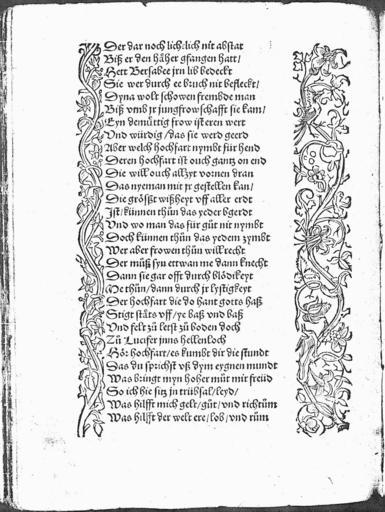 Der dar noch lichtlich nit abstat
Biß er den häher gsangen hatt/
Hett Bersabee jrn lib bedeckt
Sie wer durch eebruch nit befleckt/
Dyna wolt schowen frembde man
Biß vmb jr jungfrowschafft sie kam/
Eyn demüttig frow ist eren wert
Vnd würdig/das sie werd geert
Aber welch hochfart nymbt für hend
Deren hochfart ist ouch gantz on end
Die will ouch allzyt vornen dran
Das nyeman mit jr gestellen kan/
Die größzt wißheyt vff aller erdt
Ist/künnen thůn das yeder bgerdt
Vnd wo man das für gůt nit nymbt
Doch künnen thůn das yedem zymbt
Wer aber frowen thůn will recht
Der můß syn ettwan me dann knecht
Dann sie gar offt durch blödikeyt
Me thůn/dann durch jr lystigkeyt
Der hochfart die do hant gotts haß
Stigt stäts vff/ye baß vnd baß
Vnd felt zů letst zů boden doch
Zů Lucifer jnns hellenloch
Hör hochfart/es kumbt dir die stundt
Das du sprichst vß dym eygnen mundt
Was bringt myn hoher můt mir freüd
So ich hie sitz jn trübsal/leyd/
Was hilfft mich gelt/gůt/vnd richtům
Was hilfft der welt ere/lob/vnd rům